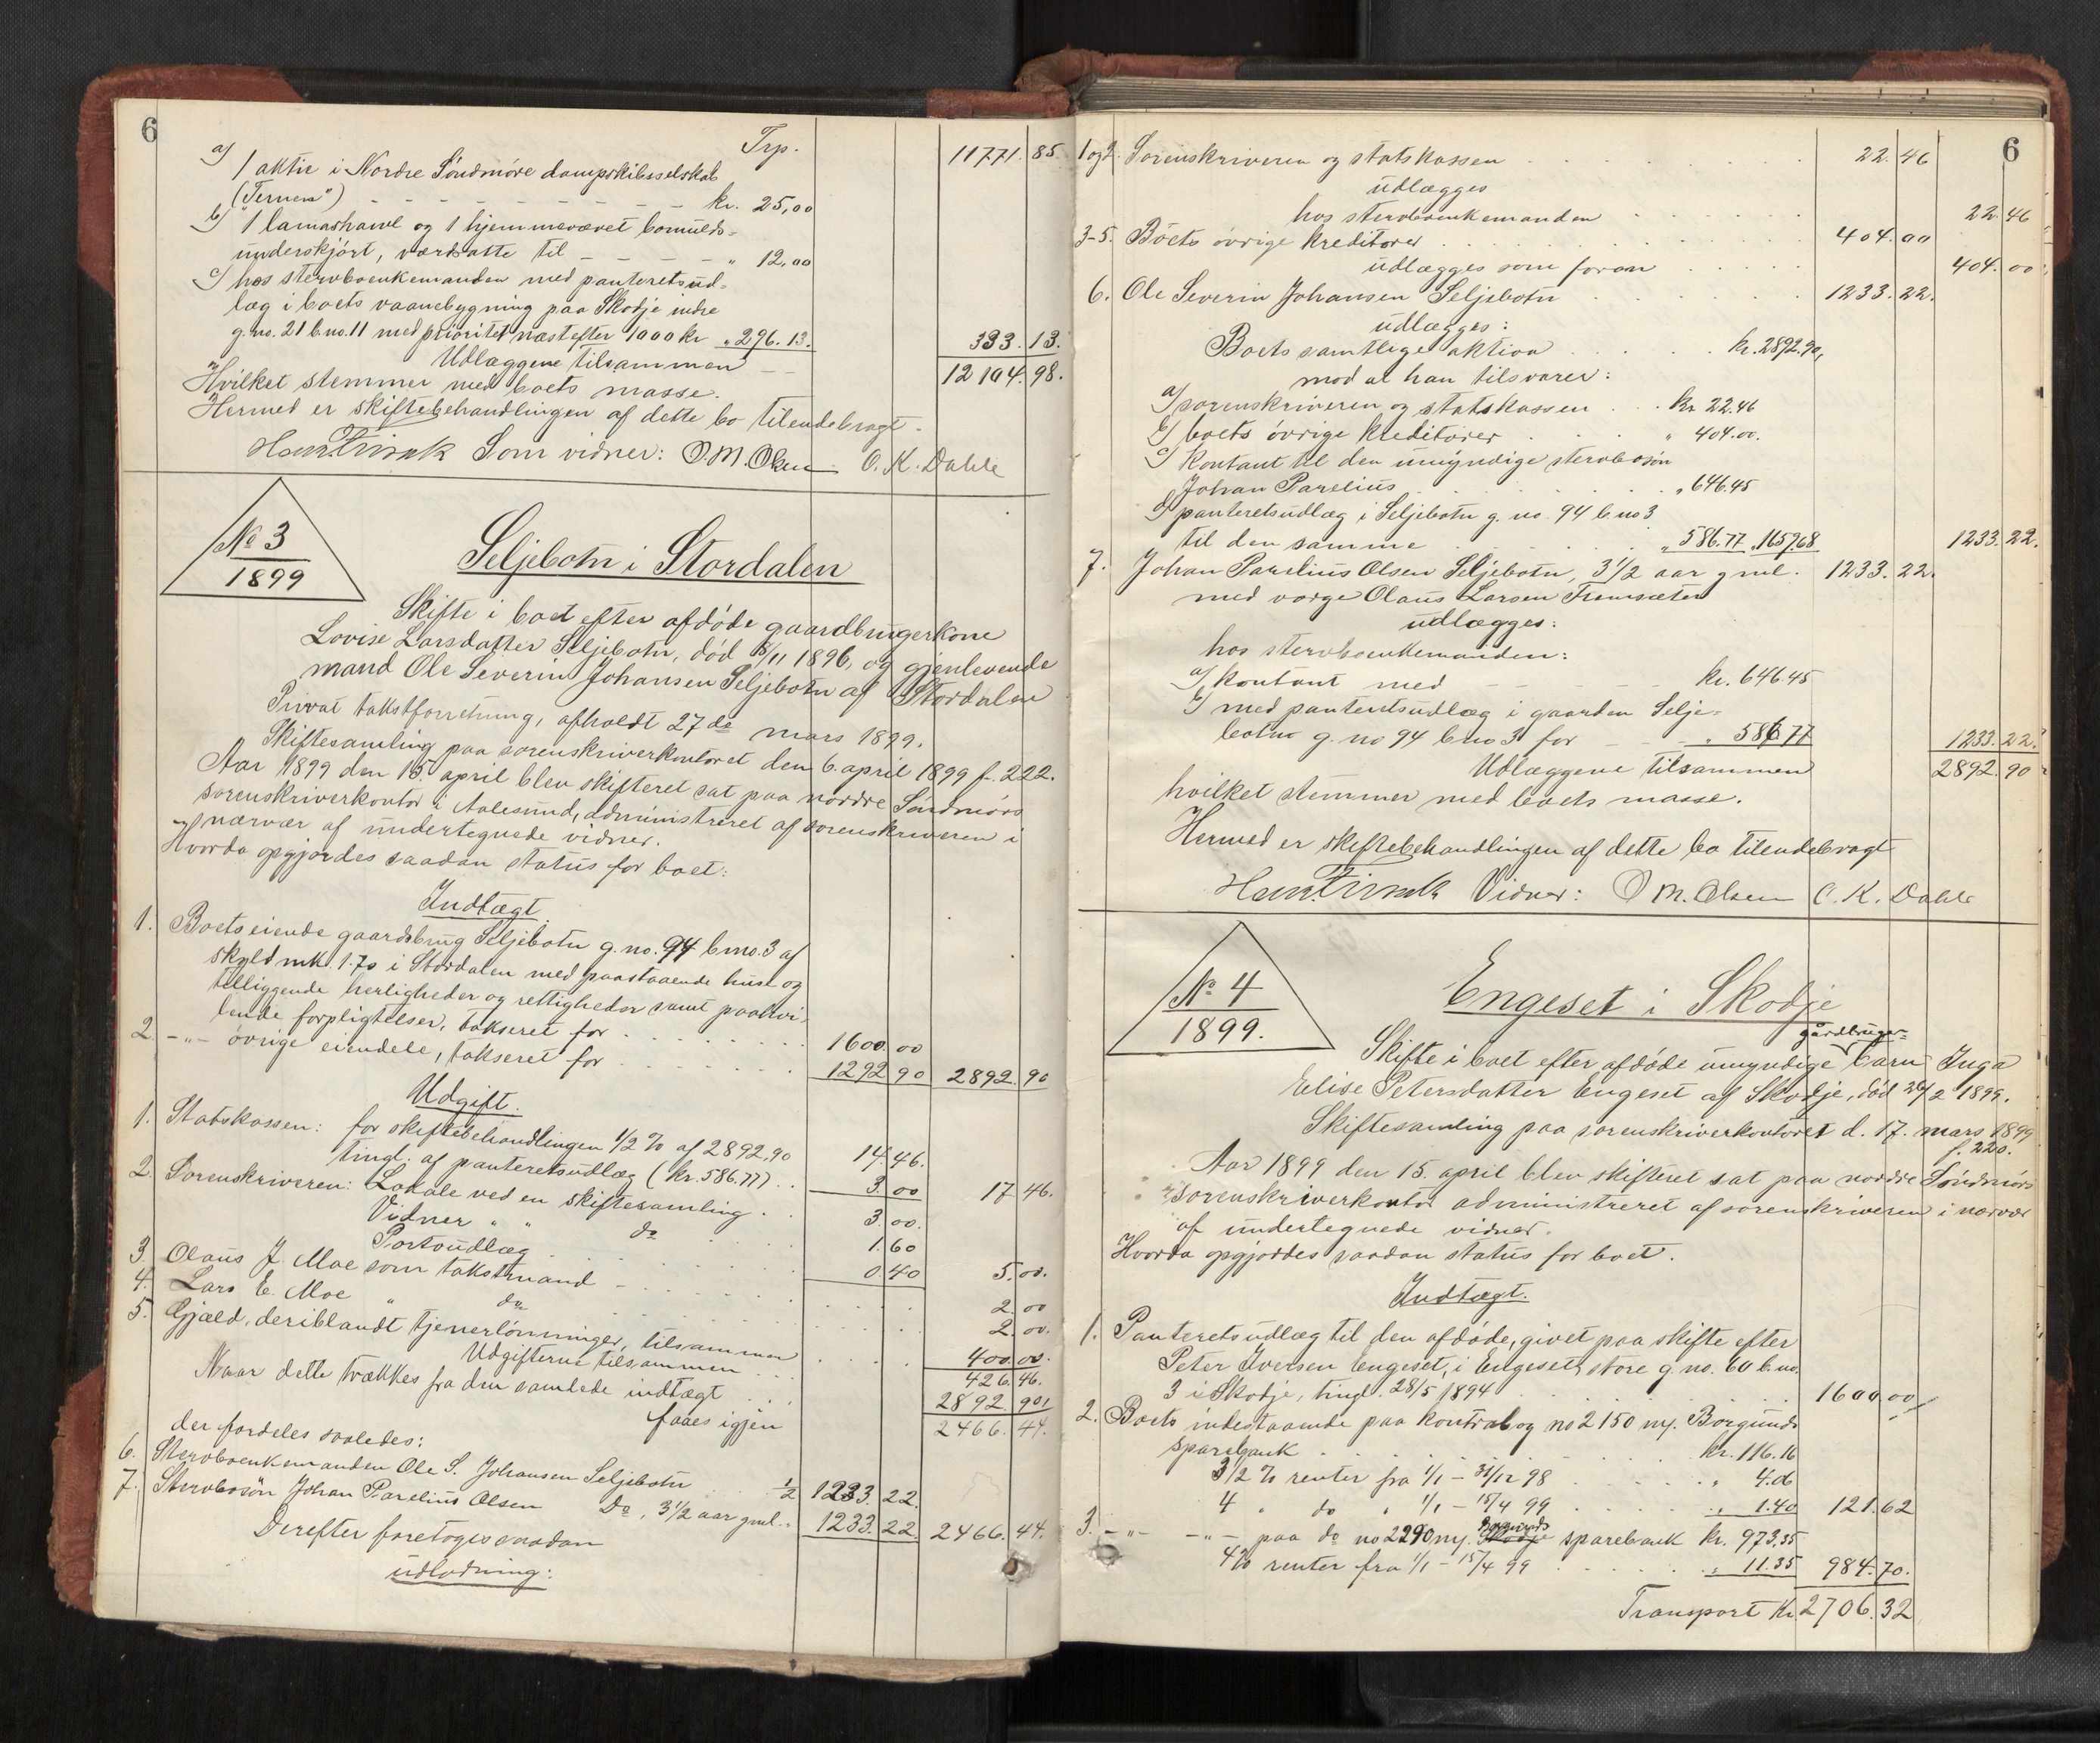 6
Trp. 11771.85.
a) 1 aktie i Nordre Söndmöre dampskibsselskab
("Ternen") kr. 25,00
b) 1 lamashawl og 1 hjemmevævet bomulds-
underskjört, værdsatte til " 12,00
c) hos stervboenkemanden med panteretsud-
læg i boets vaanebygning paa Skodje indre
g.no. 21 b.no. 11 med prioritet næst efter 1000 kr " 296.13. 333.13.
Udlæggene tilsammen 12104.98.
Hvilket stemmer med boets masse.
Hermed er skiftebehandlingen af dette bo tilendebragt.
Som vidner: O. M. Olsen O. K. Dahle
No 3
1899
Seljebotn i Stordalen
Skifte i boet efter afdöde gaardbrugerkone
Lovise Larsdatter Seljebotn, död 8/11 1896, og gjenlevende
mand Ole Severin Johansen Seljebotn af Stordalen
Privat takstforretning, afholdt 27de mars 1899.
Skiftesamling paa sorenskriverkontoret den 6. april 1899 f. 222.
Aar 1899 den 15. april blev skifteret sat paa nordre Söndmörs
sorenskriverkontor i Aalesund, administreret af sorenskriveren i
nærvær af undertegnede vidner.
Hvorda opgjordes saadan status for boet:
Indtægt.
1. Boets eiende gaardsbrug Seljebotn g.no. 94 b.no. 3 af
skyld mk. 1.70 i Stordalen med paastaaende huse og
tilliggende herligheder og rettigheder samt paahvi-
lende forpligtelser, takseret for 1600.00
2. -"- övrige eiendele, takseret for 1292 90 2892.90
Udgift.
1. Statskassen: for skiftebehandlingen 1/2 % af 2892.90 14.46.
tingl. af panteretsudlæg (kr. 586.77) 3.00 17 46.
2. Sorenskriveren: Lokale ved en skiftesamling 3.00.
Vidner " " do 1.60
Portoudlæg 0.40 5.00.
3. Olaus J. Moe som takstmand 2.00
4. Lars E. Moe " do 2.00.
5. Gjæld, deriblandt tjenerlönninger, tilsammen 400.00.
Udgifterne tilsammen 426.46.
Naar dette trækkes fra den samlede indtægt 2892.90,
faaes igjen 2466.44.
der fordeles saaledes:
6. Stervboenkemanden Ole S. Johansen Seljebotn 1/2 1233.22.
7. Stervbosön Johan Parelius Olsen Do, 3 1/2 aar gml. " 1233.22. 2466.44.
Derefter foretoges saadan
udlodning:
6
1 og 2. Sorenskriveren og statskassen 22.46
udlægges
hos stervboenkemanden 22.46
3-5. Boets övrige kreditorer 404.00
udlægges som foran 404.00
6. Ole Severin Johansen Seljebotn 1233.22.
udlægges:
Boets samtlige aktiva kr. 2892.90,
mod at han tilsvarer:
a) sorenskriveren og statskassen kr 22.46
b) boets övrige kreditorer " 404.00.
c) kontant til den umyndige stervbosön
Johan Parelius " 646.45
d) panteretsudlæg i Seljebotn g. no. 94 b. no 3
til den samme " 586.77 " 1659.68 1233.22.
7. Johan Parelius Olsen Seljebotn, 3 1/2 aar gml. 1233.22.
med værge Olaus Larsen Fremsæter
udlægges:
hos stervboenkemanden:
a) kontant med kr. 646.45
b) med panteretsudlæg i gaarden Selje-
botn g. no 94 b no 3 for " 586 77 1233.22.
Udlæggene tilsammen 2892.90
hvilket stemmer med boets masse.
Hermed er skiftebehandlingen af dette bo tilendebragt
Vidner: O M. Olsen O. K. Dahle
No 4
1899.
Engeset i Skodje
gårdbruger-
Skifte i boet efter afdöde umyndige barn Inga
Elise Petersdatter Engeset af Skodje, död 26/2 1899.
Skiftesamling paa sorenskriverkontoret d. 17. mars 1899
f. 220.
Aar 1899 den 15. april blev skifteret sat paa nordre Söndmörs
sorenskriverkontor administreret af sorenskriveren i nærvær
af undertegnede vidner.
Hvorda opgjordes saadan status for boet.
Indtægt.
1. Panteretsudlæg til den afdöde, givet paa skifte efter
Peter Iversen Engeset, i Engeset store g. no. 60 b. no.
3 i Skodje, tingl. 28/5 1894 1600.00
2. Boets indestaaende paa kontrabog no 2150 ny. Borgunds
sparebank kr. 116.16
3 1/2 % renter fra 1/1 - 31/12 98 " 4.06
4 " do " 1/1 - 15/4 99 " 1.40 121.62
3. -"- -"- paa do no 2290 ny. Skodje Borgunds sparebank kr. 973.35
4% renter fra 1/1 - 15/4 99 " 11.35 984.70.
Transport Kr 2706.32